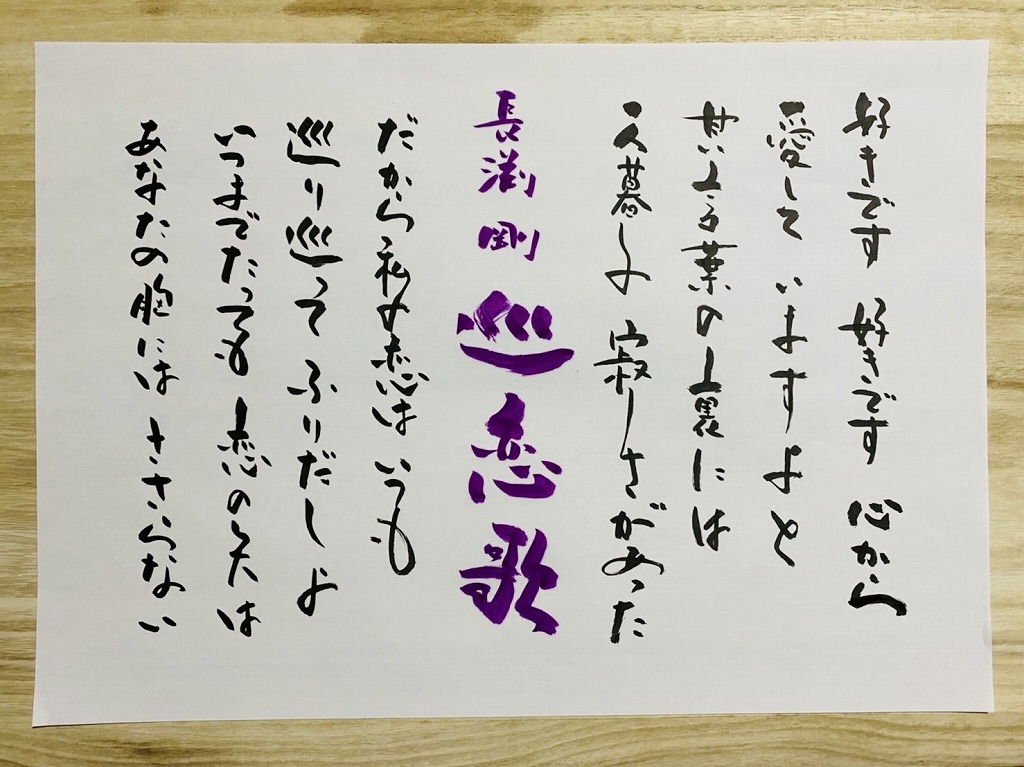 好きです 好きです 心から
愛して いますよと
甘い言葉の裏には
一人暮しの 寂しさがあった
長渕 剛 巡恋歌
だから私の恋は いつも
巡り巡って ふりだしよ
いつまでたっても 恋の矢は
あなたの胸には ささらない